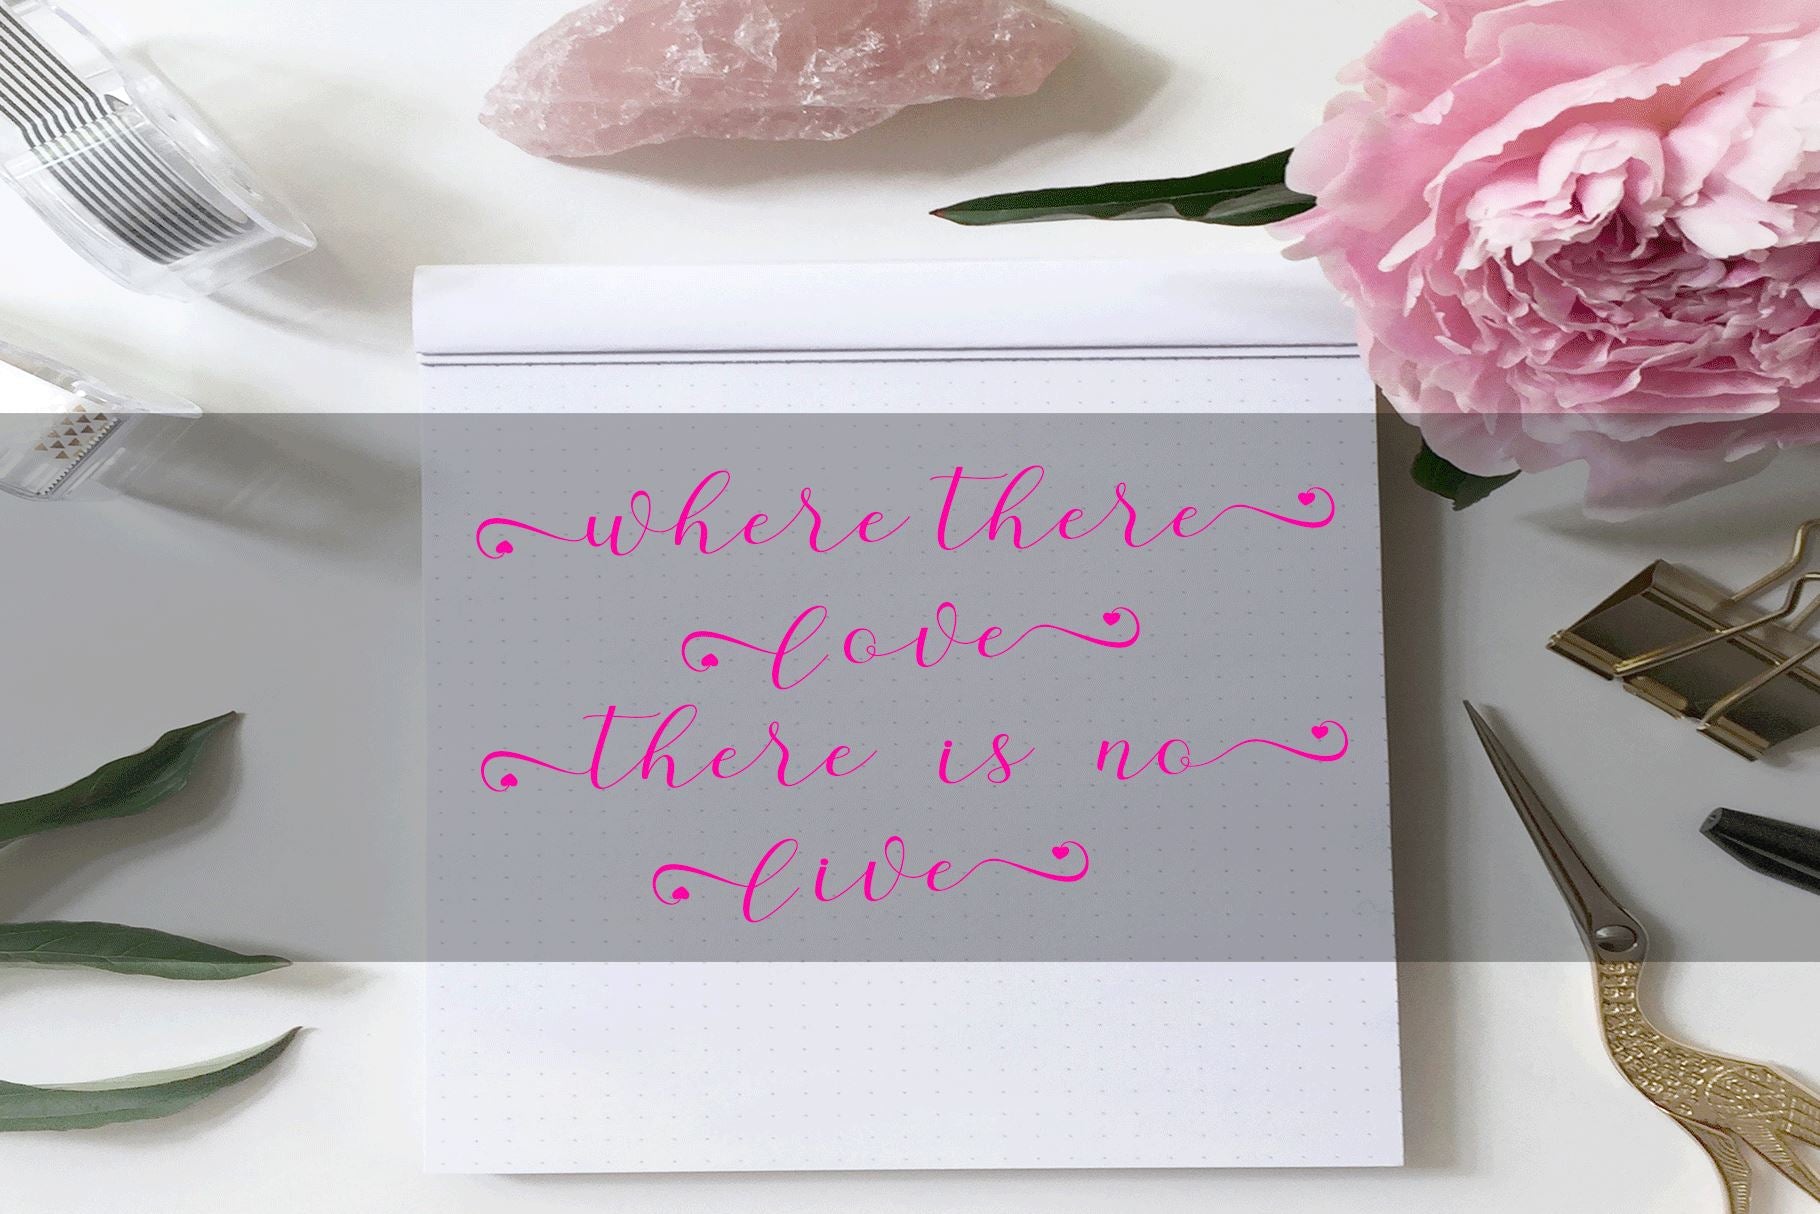 where there
love
there is no
live